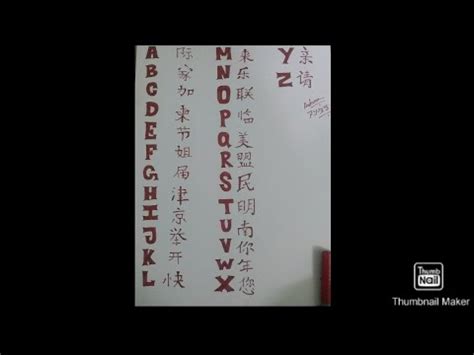 A 陈
B 家
C 加
D 柬
E 节
F 姐
G 届
H 津
I 京
J 举
K 开
L 快
M 来
N 乐
O 联
P 临
Q 美
R 盟
S 民
T 明
U 南
V 你
W 年
X 您
Y 亲
Z 请
Thumb
Nail
Thumbnail Maker